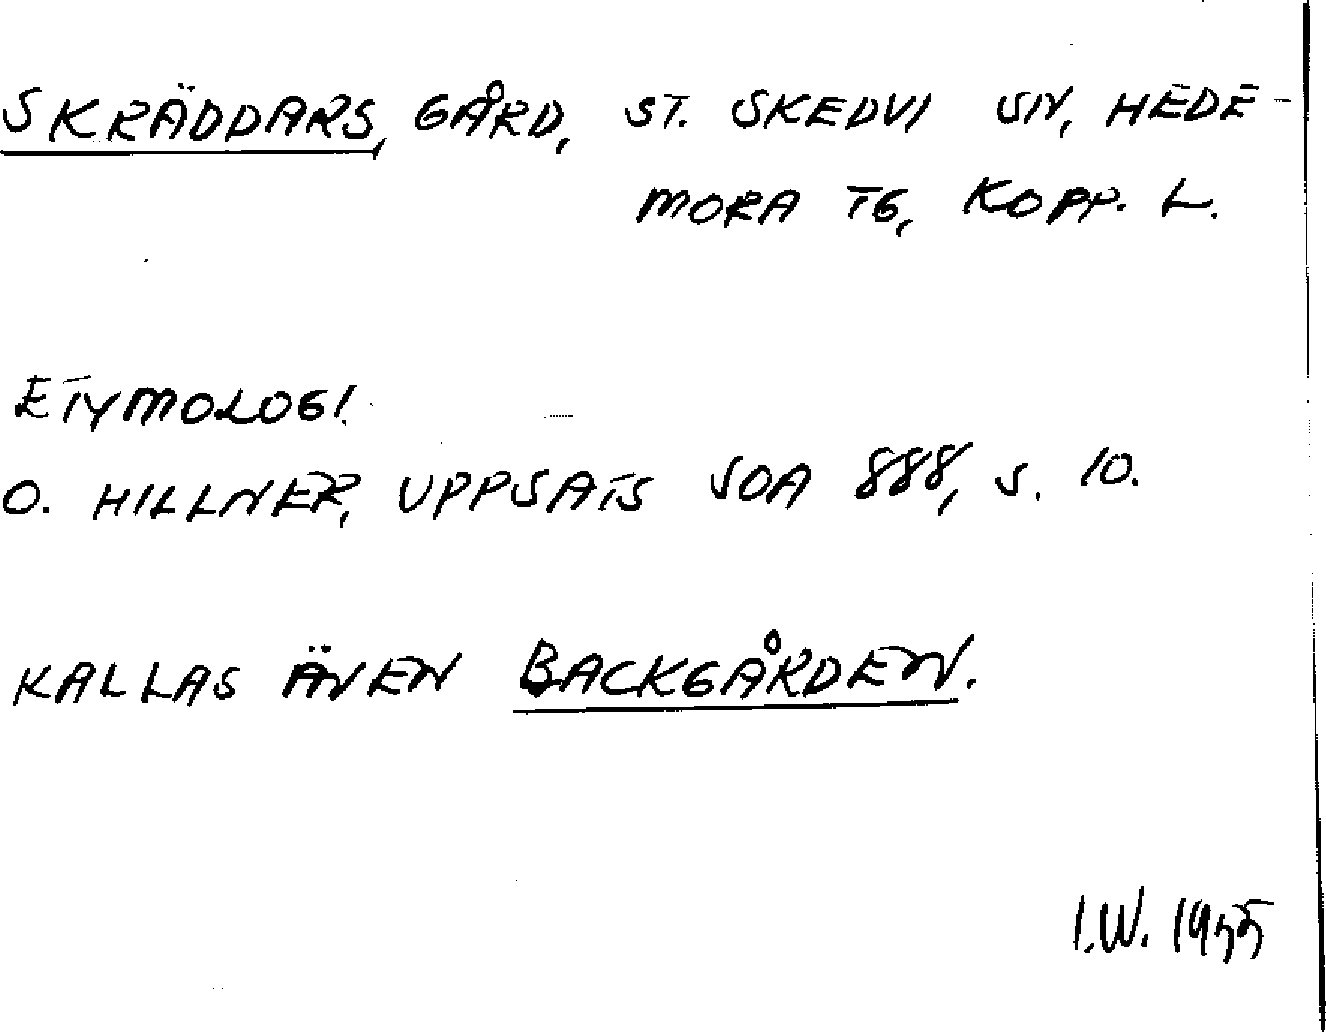 SKRÄDDARS, GÅRD, ST. SKEDVI SN, HEDE-
MORA TG, KOPP. L.
ETYMOLOGI.
O. HILLNER, UPPSATS SOA 888, S. 10.
KALLAS ÄVEN BACKGÅRDEN.
I.W. 1955